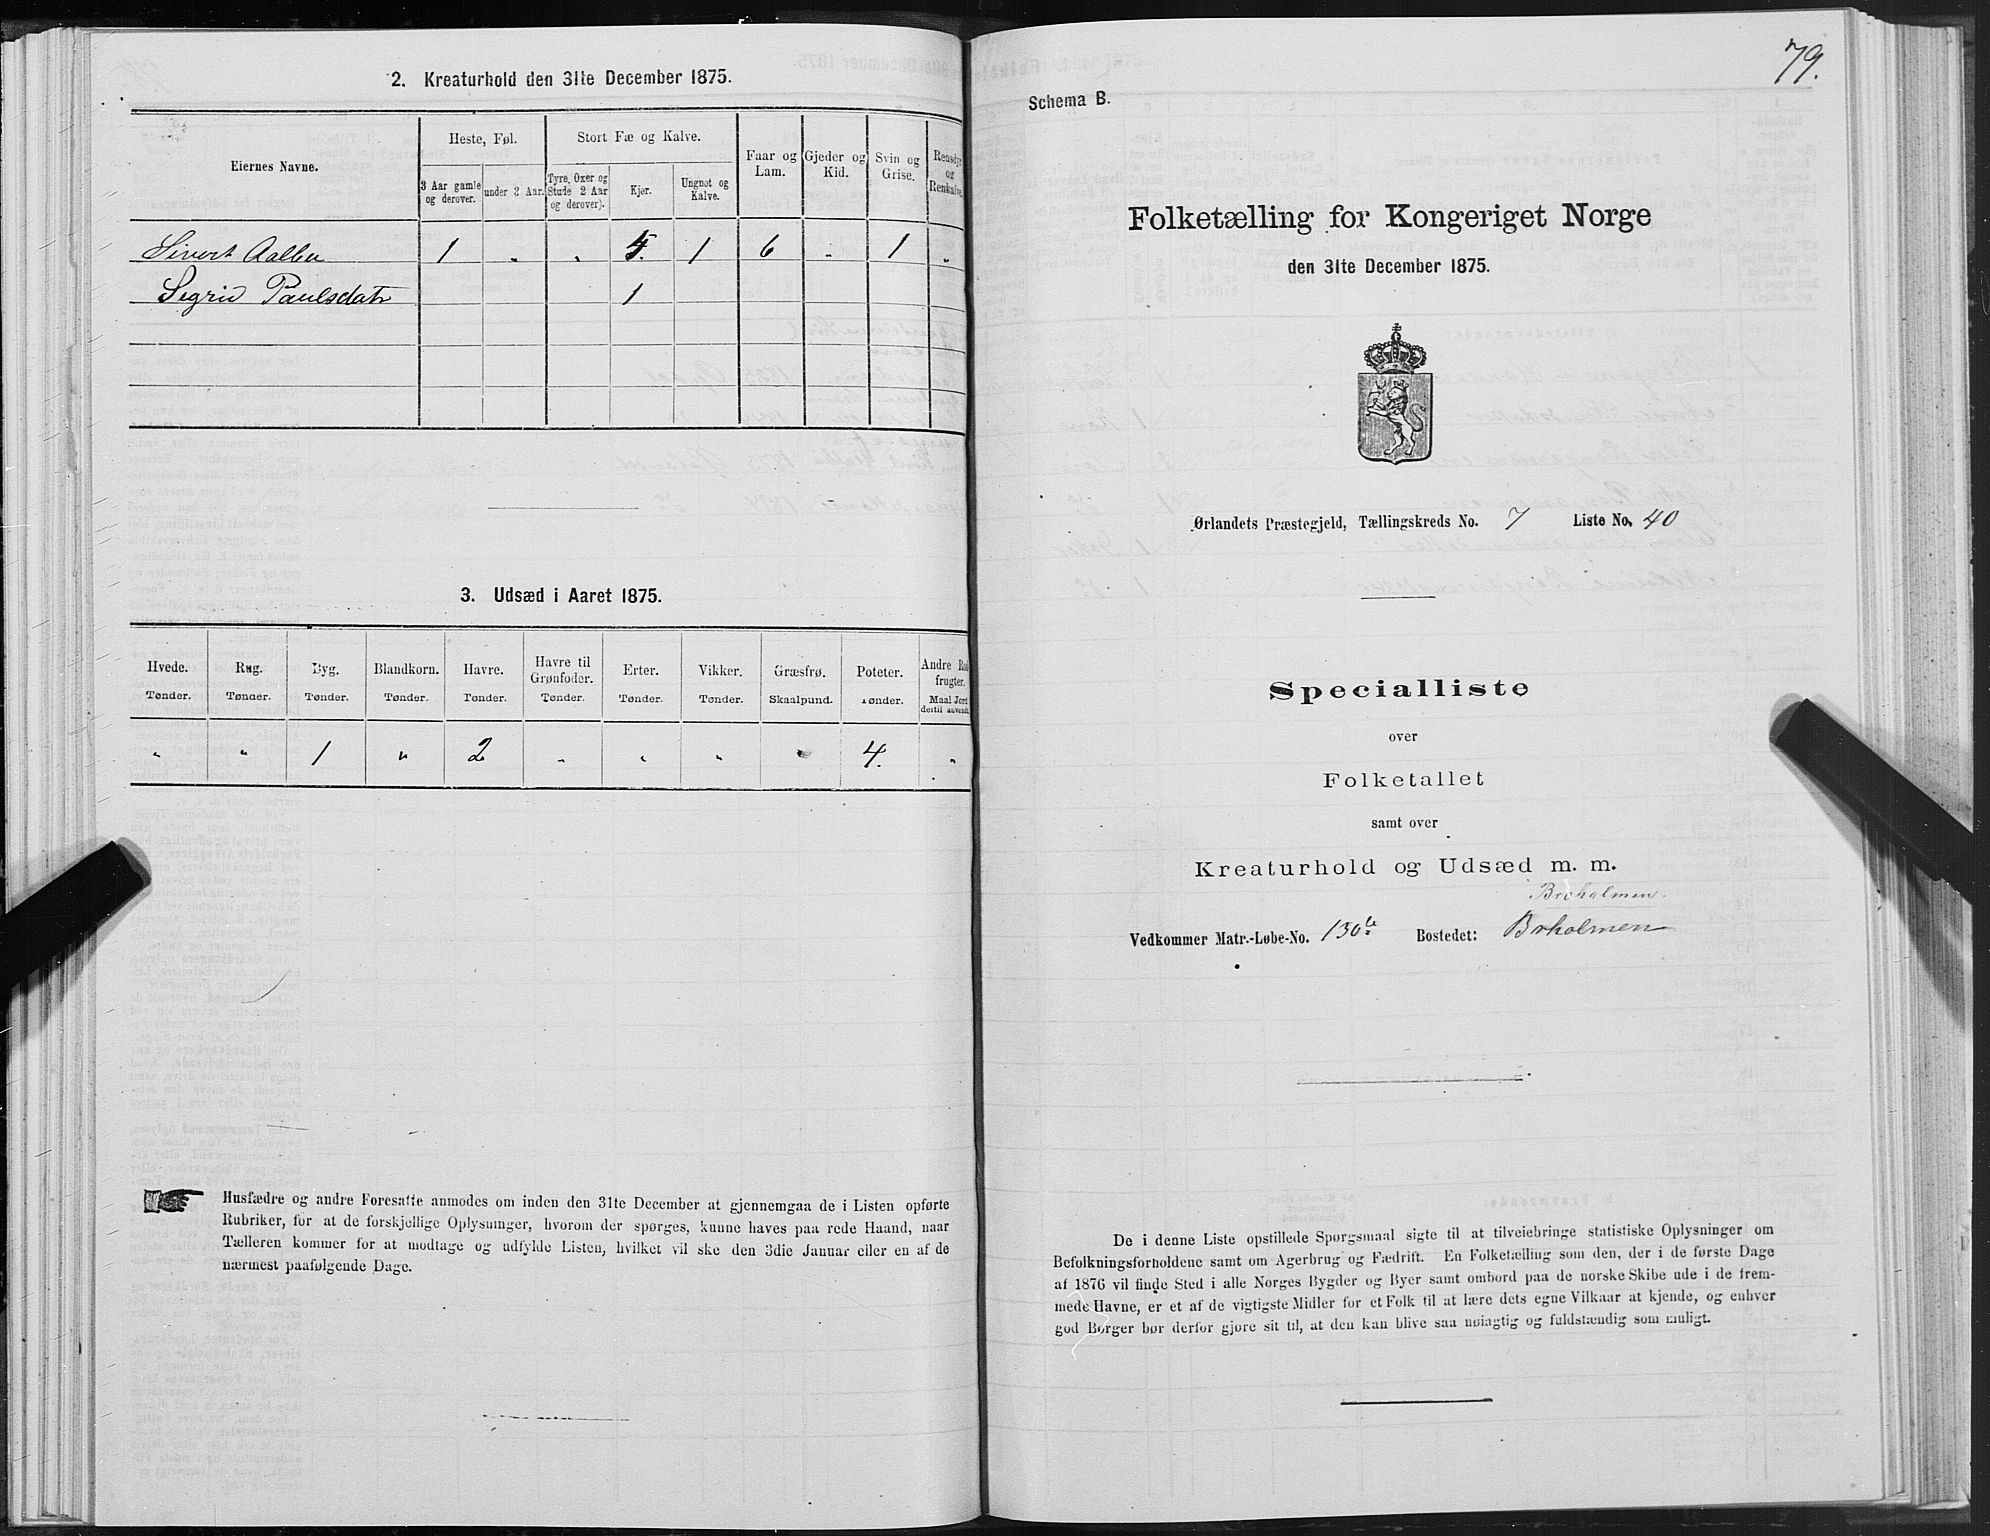 2. Kreaturhold den 31te December 1875.
Eiernes Navne.
Heste, Føl.
Stort Fæ og Kalve.
Faar og Lam.
Gjeder og Kid.
Svin og Grise.
Rensdyr og Renkalve.
3 Aar gamle og derover.
under 3 Aar.
Tyre, Oxer og Stude 2 Aar og derover).
Kjør.
Ungnøt og Kalve.
Sivert Aalbu 1 " " 5. 1 6 " 1 "
Segrid Paulsdatr 1
3. Udsæd i Aaret 1875.
Hvede. Rug. Byg. Blandkorn. Havre. Havre til Grønfoder. Erter. Vikker. Græsfrø. Poteter. Andre Rodfrugter.
Tønder. Tønder. Tønder. Tønder. Tønder. Tønder. Tønder. Tønder. Skaalpund. Tønder. Maal Jord dertil anvendt.
" " 1 " 2 " " " " 4. "
Husfædre og andre Foresatte anmodes om inden den 31te December at gjennemgaa de i Listen opførte
Rubriker, for at de forskjellige Oplysninger, hvorom der spørges, kunne haves paa rede Haand, naar
Tælleren kommer for at modtage og udfylde Listen, hvilket vil ske den 3die Januar eller en af de
nærmest paafølgende Dage.
79.
Schema B.
Folketælling for Kongeriget Norge
den 31te December 1875.
Ørlandets Præstegjeld, Tællingskreds No. 7 Liste No. 40
Specialliste
over
Folketallet
samt over
Kreaturhold og Udsæd m. m.
Broholmen.
Vedkommer Matr.-Løbe-No. 130 Bostedet: Brholmen
De i denne Liste opstillede Spørgsmaal sigte til at tilveiebringe statistiske Oplysninger om
Befolkningsforholdene samt om Agerbrug og Fædrift. En Folketælling som den, der i de første Dage
af 1876 vil finde Sted i alle Norges Bygder og Byer samt ombord paa de norske Skibe ude i de frem-
mede Havne, er et af de vigtigste Midler for et Folk til at lære dets egne Vilkaar at kjende, og enhver
god Borger bør derfor gjøre sit til, at den kan blive saa nøiagtig og fuldstændig som muligt.